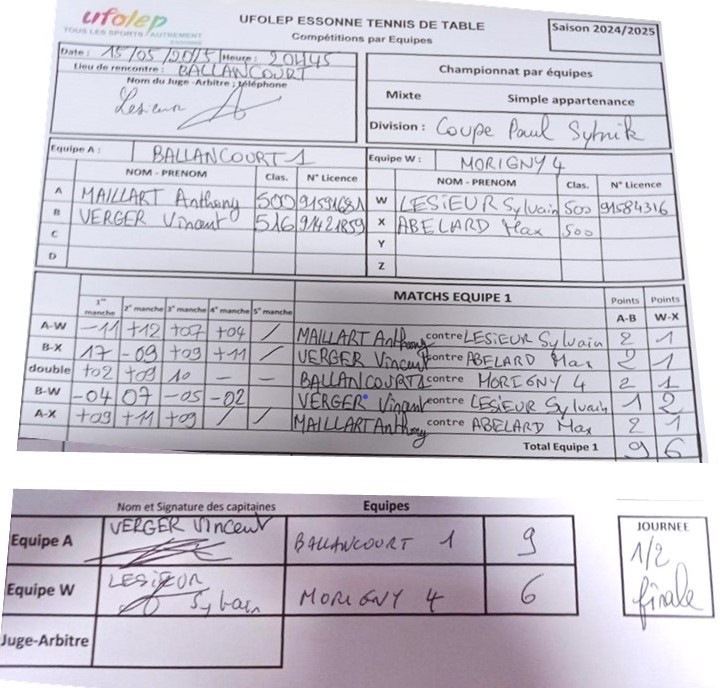 ufolep
TOUS LES SPORTS AUTREMENT
ESSONNE
UFOLEP ESSONNE TENNIS DE TABLE
Compétitions par Equipes
Saison 2024/2025
Date : 15/05/2025 Heure : 20H45
Lieu de rencontre : BALLANCOURT
Nom du Juge-Arbitre ; téléphone
Lesieur
Championnat par équipes
Mixte Simple appartenance
Division : Coupe Paul Sybnik
Equipe A : BALLANCOURT 1
Equipe W : MORIGNY 4
NOM - PRENOM Clas. N° Licence
NOM - PRENOM Clas. N° Licence
A MAILLART Anthony 500 91591681
W LESIEUR Sylvain 500 91584316
B VERGER Vincent 516 91421859
X ABELARD Max 500
C
Y
D
Z
1ère manche 2° manche 3° manche 4° manche 5° manche MATCHS EQUIPE 1 Points A-B Points W-X
A-W -11 +12 +07 +04 / MAILLART Anthony contre LESIEUR Sylvain 2 1
B-X 17 -09 +09 +11 / VERGER Vincent contre ABELARD Max 2 1
double +02 +09 10 - - BALLANCOURT 1 contre MORIGNY 4 2 1
B-W -04 07 -05 -02 VERGER Vincent contre LESIEUR Sylvain 1 2
A-X +09 +11 +09 / / MAILLART Anthony contre ABELARD Max 2 1
Total Equipe 1 9 6
Nom et Signature des capitaines Equipes
Equipe A VERGER Vincent BALLANCOURT 1 9
Equipe W LESIEUR Sylvain MORIGNY 4 6
Juge-Arbitre
JOURNEE
1/2
finale